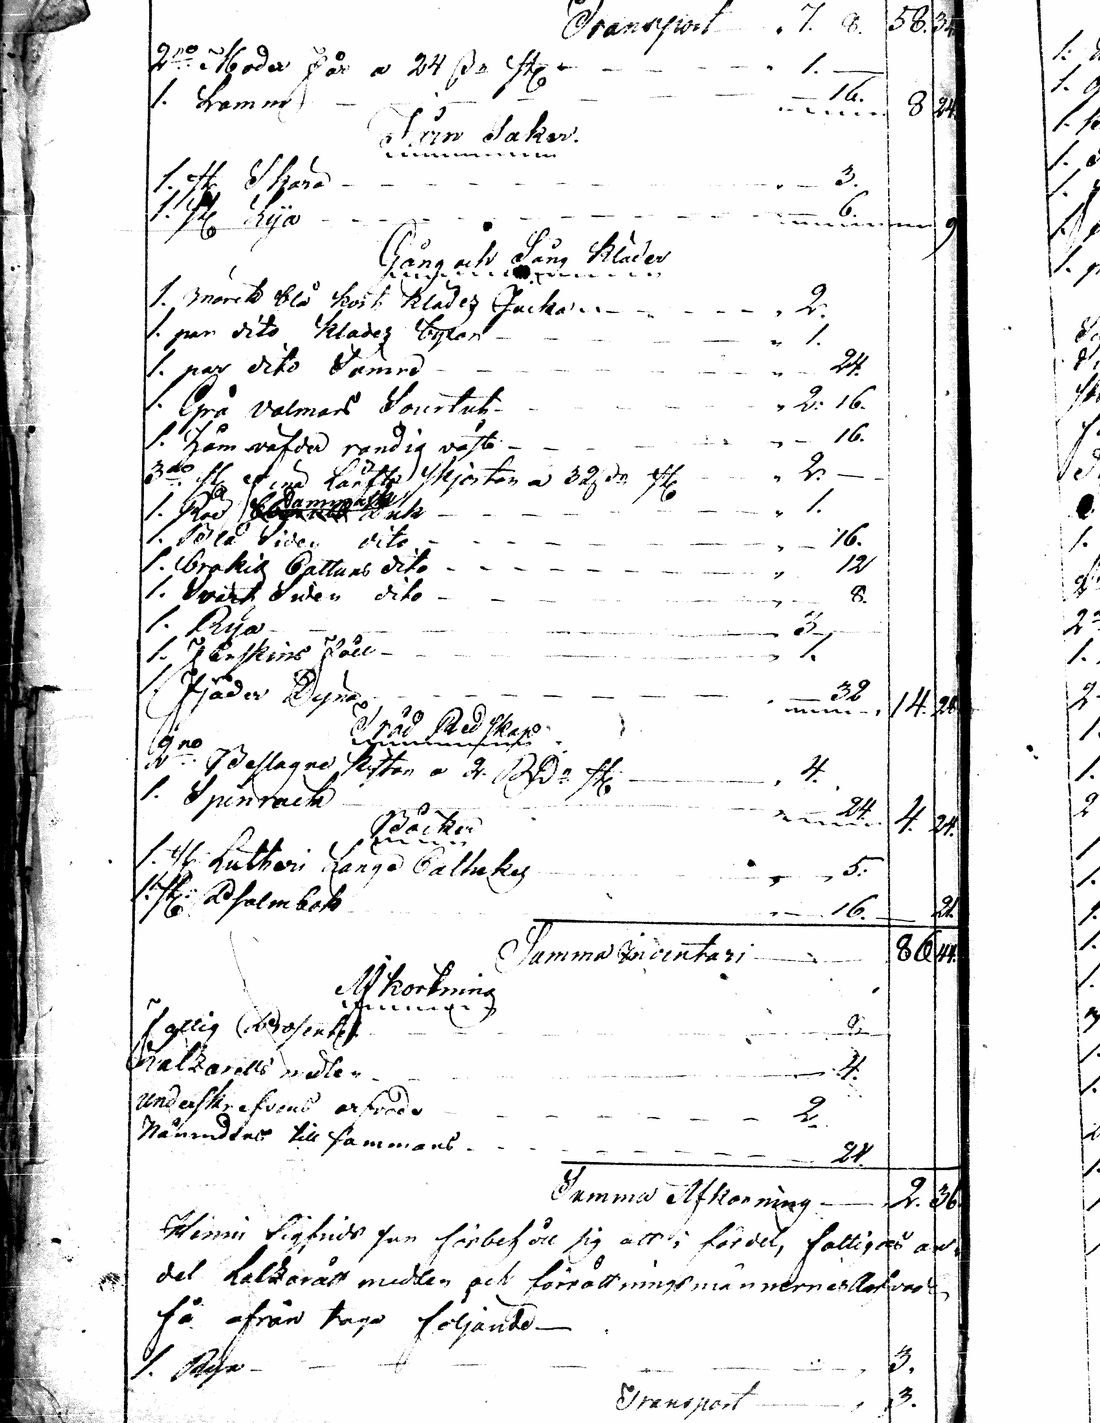 Transport 7. 8. 58. 34
2ne Moder Får a 24 st 1. —
1. Lamm — 16. 8 24
Järn Saker.
1. st Skara — 3.
1. st Lija — 6. 9
Gång och Säng Kläder
1. mörck blå kort Klädes Jacka — 2.
1. par dito Klädes byxor — 1.
1. par dito Sämre — 24.
1. Grå valmars Sourtut — 2. 16.
1. Hämväfder randig väst — 16.
3ne st Lärfts Skjortor a 32 st — 2. —
1. Röd Dammask Duk — 1.
1. Blå Siden dito — 16.
1. Brokig Cattuns dito — 12
1. Svart Siden dito — 8.
1. Rya — 3
1. Fårskins Fäll — 1.
1 Fjäder Dyna — 32 14. 28
Träd Redskap
2ne Beslagne Kistor a 2. R.D. st — 4.
1. Spinrack — 24. 4. 24.
Böcker
1. st Lutheri Långe Cathekes — 5.
1. st. Psalmbok — 16. — 21.
Summa inventari — 86 44.
Afkortning
Fattig Prosenter — 8.
— medlen — 4.
underskrefvens arfvode — 2.
Nämndens till sammans — 24.
Summa Afkorning — 2. 36
Sigfrids son förbehöll sig att i fördel, fattigas an
del medlen och förrättningsmännernes
få afrän taga följande —
1. Rya — 3.
Transport 3.